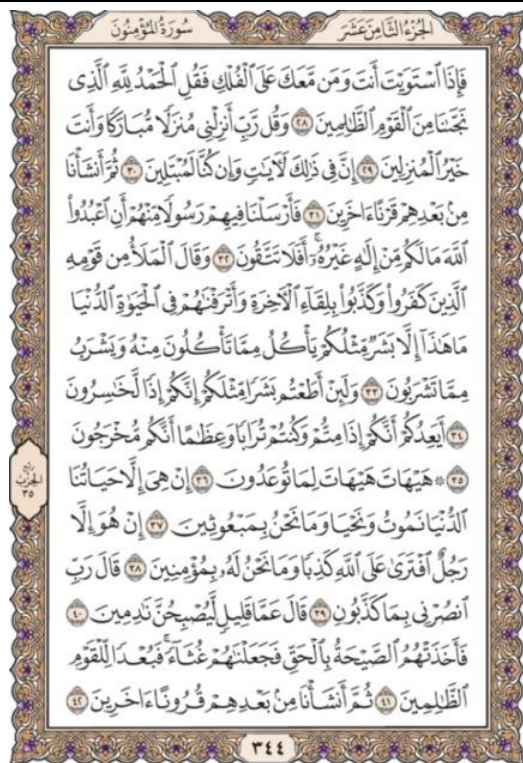 سُورَةُ المُؤْمِنُونَ
الجُزْءُ الثَّامِنَ عَشَرَ
فَإِذَا ٱسْتَوَيْتَ أَنتَ وَمَن مَّعَكَ عَلَى ٱلْفُلْكِ فَقُلِ ٱلْحَمْدُ لِلَّهِ ٱلَّذِى
نَجَّىٰنَا مِنَ ٱلْقَوْمِ ٱلظَّـٰلِمِينَ ٢٨ وَقُل رَّبِّ أَنزِلْنِى مُنزَلًا مُّبَارَكًا وَأَنتَ
خَيْرُ ٱلْمُنزِلِينَ ٢٩ إِنَّ فِى ذَٰلِكَ لَـَٔايَـٰتٍ وَإِن كُنَّا لَمُبْتَلِينَ ٣٠ ثُمَّ أَنشَأْنَا
مِنۢ بَعْدِهِمْ قَرْنًا ءَاخَرِينَ ٣١ فَأَرْسَلْنَا فِيهِمْ رَسُولًا مِّنْهُمْ أَنِ ٱعْبُدُوا۟
ٱللَّهَ مَا لَكُم مِّنْ إِلَـٰهٍ غَيْرُهُۥٓ ۚ أَفَلَا تَتَّقُونَ ٣٢ وَقَالَ ٱلْمَلَأُ مِن قَوْمِهِ
ٱلَّذِينَ كَفَرُوا۟ وَكَذَّبُوا۟ بِلِقَآءِ ٱلْـَٔاخِرَةِ وَأَتْرَفْنَـٰهُمْ فِى ٱلْحَيَوٰةِ ٱلدُّنْيَا
مَا هَـٰذَآ إِلَّا بَشَرٌ مِّثْلُكُمْ يَأْكُلُ مِمَّا تَأْكُلُونَ مِنْهُ وَيَشْرَبُ
مِمَّا تَشْرَبُونَ ٣٣ وَلَئِنْ أَطَعْتُم بَشَرًا مِّثْلَكُمْ إِنَّكُمْ إِذًا لَّخَـٰسِرُونَ
٣٤ أَيَعِدُكُمْ أَنَّكُمْ إِذَا مِتُّمْ وَكُنتُمْ تُرَابًا وَعِظَـٰمًا أَنَّكُم مُّخْرَجُونَ
٣٥ ۞ هَيْهَاتَ هَيْهَاتَ لِمَا تُوعَدُونَ ٣٦ إِنْ هِىَ إِلَّا حَيَاتُنَا
ٱلدُّنْيَا نَمُوتُ وَنَحْيَا وَمَا نَحْنُ بِمَبْعُوثِينَ ٣٧ إِنْ هُوَ إِلَّا
رَجُلٌ ٱفْتَرَىٰ عَلَى ٱللَّهِ كَذِبًا وَمَا نَحْنُ لَهُۥ بِمُؤْمِنِينَ ٣٨ قَالَ رَبِّ
ٱنصُرْنِى بِمَا كَذَّبُونِ ٣٩ قَالَ عَمَّا قَلِيلٍ لَّيُصْبِحُنَّ نَـٰدِمِينَ ٤٠
فَأَخَذَتْهُمُ ٱلصَّيْحَةُ بِٱلْحَقِّ فَجَعَلْنَـٰهُمْ غُثَآءً ۚ فَبُعْدًا لِّلْقَوْمِ
ٱلظَّـٰلِمِينَ ٤١ ثُمَّ أَنشَأْنَا مِنۢ بَعْدِهِمْ قُرُونًا ءَاخَرِينَ ٤٢
ربع
الحزب
٣٥
٣٤٤